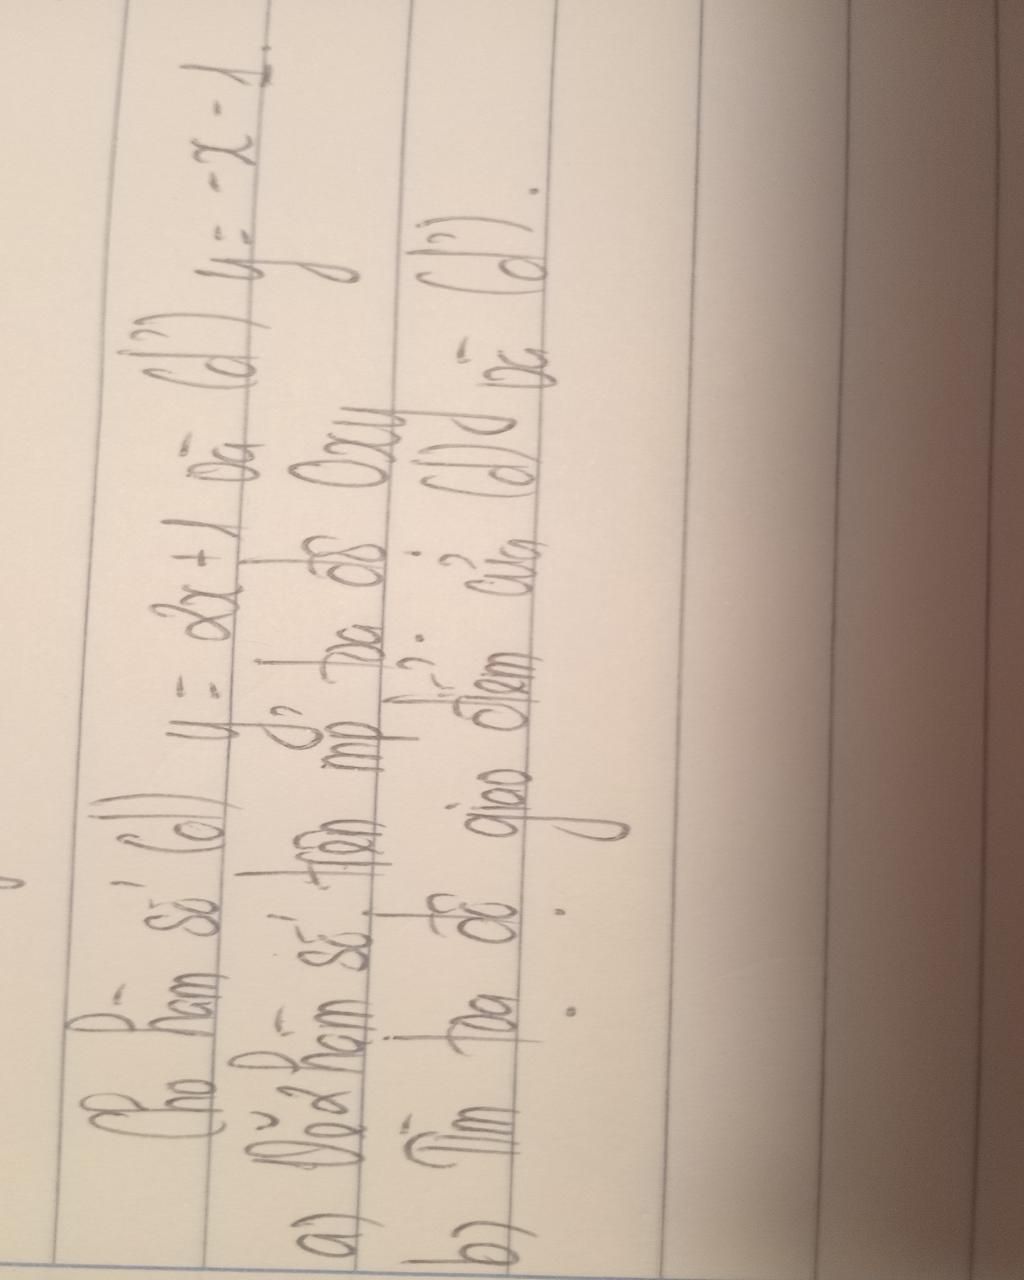 Cho hàm số (d) y = 2x + 1 và (d') y = -x - 1.
a) Vẽ 2 hàm số trên mp tọa độ Oxy
b) Tìm tọa độ giao điểm của (d) và (d').